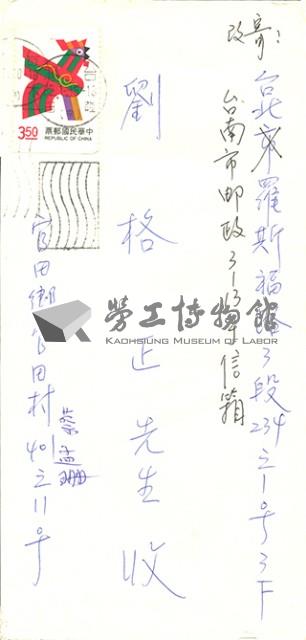 改寄：
台北市羅斯福路3段234之1号3F
台南市邮政3-13号信箱
劉格正先生收
官田鄉官田村401之11号
蔡孟珊
3.50
中華民國郵票
REPUBLIC OF CHINA
勞工博物館
KAOHSIUNG MUSEUM OF LABOR